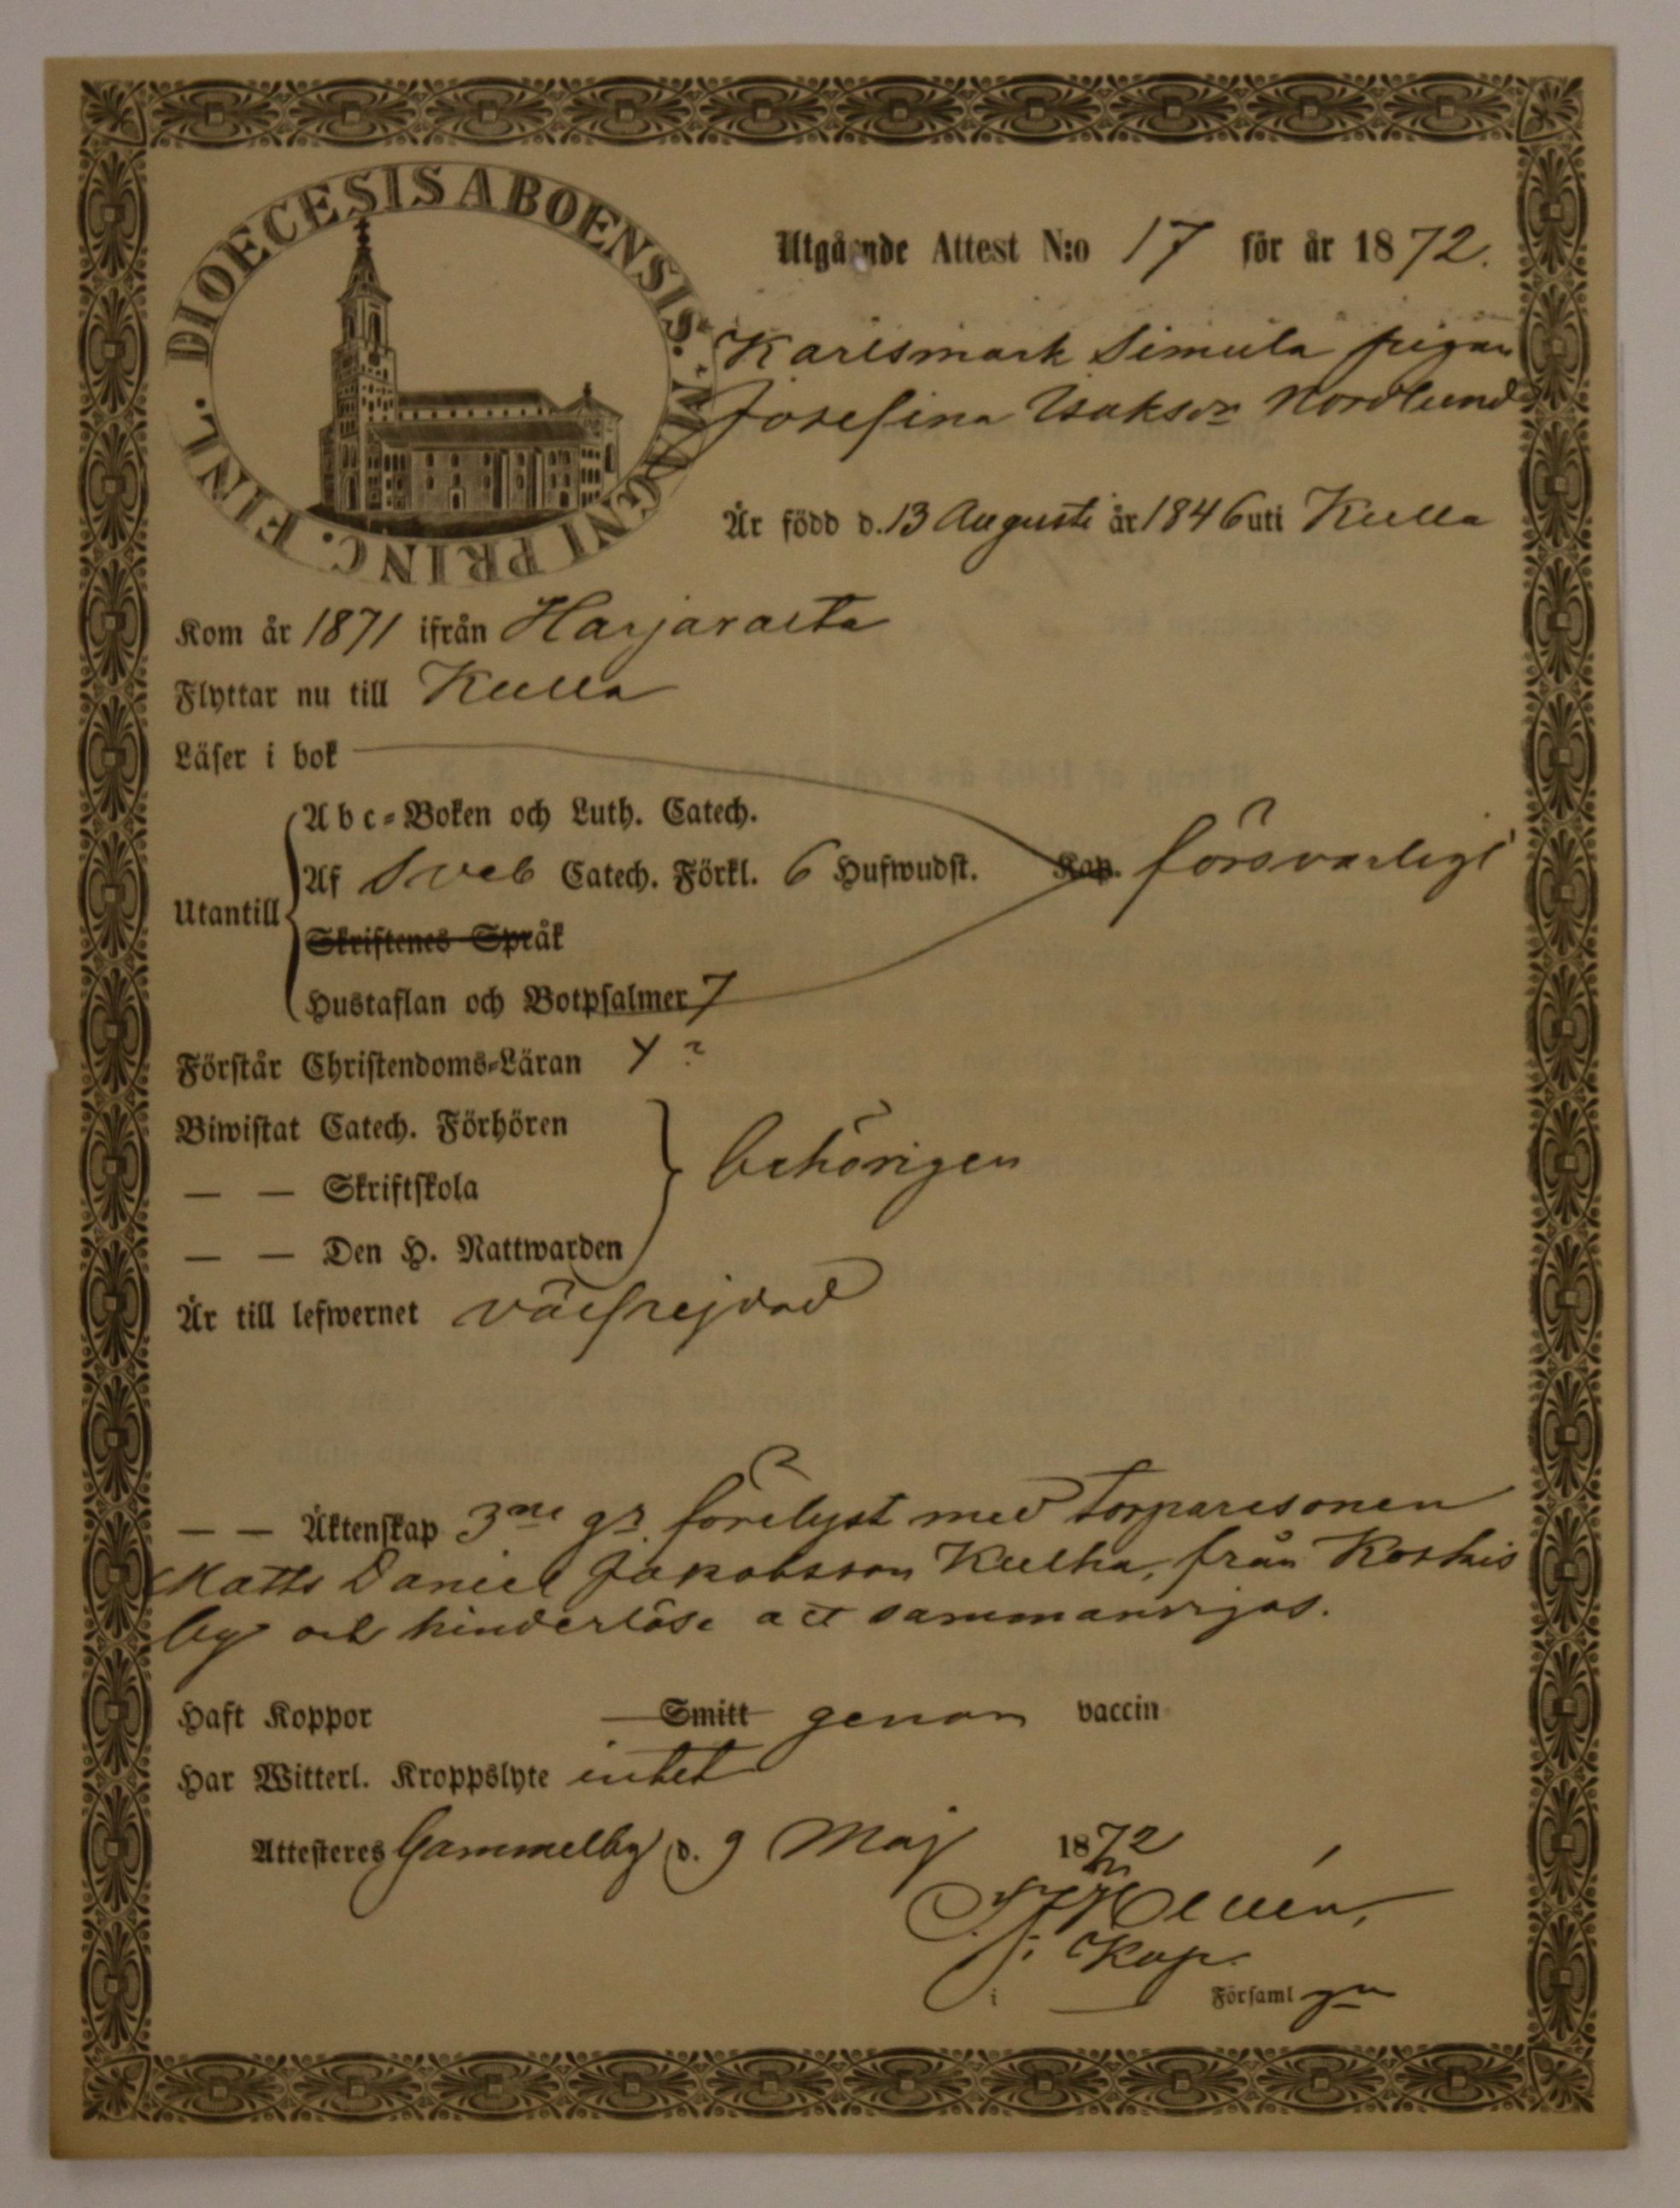 DIOECESIS ABOENSIS. MAGNI PRINC. FINL.
Utgående Attest N:o 17 för år 1872.
Karlsmark Simula pigan
Josefina Isaksdr Nordlund
Är född d. 13 Augusti år 1846 uti Kulla
Kom år 1871 ifrån Harjavalta
Flyttar nu till Kulla
Läser i bok
Abc-Boken och Luth. Catech.
Utantill Af Sveb Catech. Förkl. 6 Hufwudst. Kap. försvarligt
Skriftenes Språk
Hustaflan och Botpsalmer 7
Förstår Christendoms-Läran
Biwistat Catech. Förhören
— — Skriftskola behörigen
— — Den H. Nattwarden
Är till lefwernet välfrejdad
— — Äktenskap 3ne gr förelyst med torparesonen
Matts Daniel Jakobsson Kulha, från Koskis
by och hinderlöse att sammanvigas.
Haft Koppor Smitt genom vaccin
Har Witterl. Kroppslyte intet
Attesteres Gammelby d. 9 Maj 1872
Kap.
i Församl gn